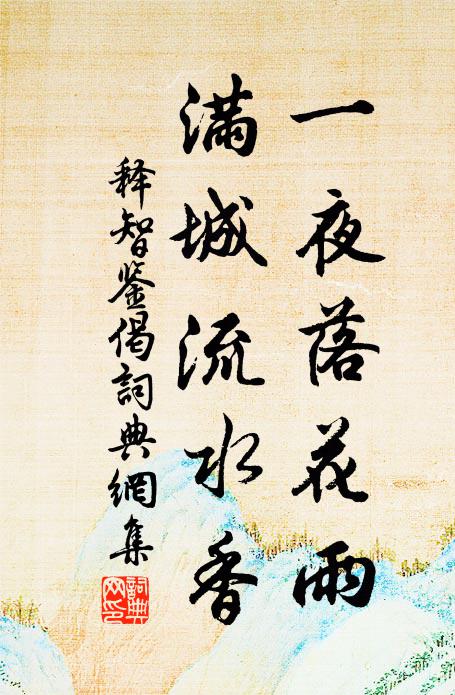 一夜落花雨
滿城流水香
释智鉴偈詞典網集
詞典